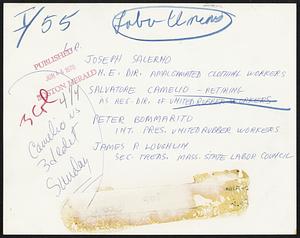 I/55
Labor Unions
PUBLISHED
BOSTON HERALD
3 Col
4/4
Camelio vs
3d edit
Sunday
JOSEPH SALERNO
N.E. DIR. AMALGAMATED CLOTHING WORKERS
SALVATORE CAMELIO - RETIRING
AS REG. DIR. OF UNITED RUBBER WORKERS
PETER BOMMARITO
INT. PRES. UNITED RUBBER WORKERS
JAMES P. LOUGHLIN
SEC. TREAS. MASS. STATE LABOR COUNCIL